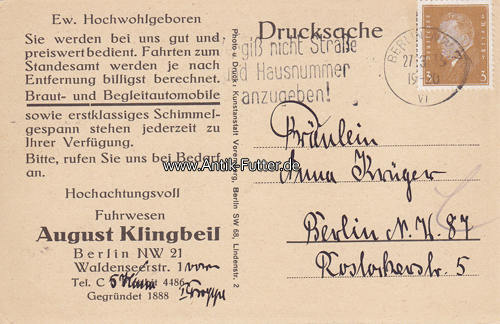 Ew. Hochwohlgeboren
Sie werden bei uns gut und
preiswert bedient. Fahrten zum
Standesamt werden je nach
Entfernung billigst berechnet.
Braut- und Begleitautomobile
sowie erstklassiges Schimmel-
gespann stehen jederzeit zu
Ihrer Verfügung.
Bitte, rufen Sie uns bei Bedarf
an.
Hochachtungsvoll
Fuhrwesen
August Klingbeil
Berlin NW 21
Waldenserstr. 1 vorn
Tel. C 4486
Gegründet 1888 Treppe
Photo u. Druck: Kunstanstalt Voremberg, Berlin SW 68, Lindenstr. 2
Drucksache
giß nicht Straße
d Hausnummer
anzugeben!
BERLIN
27
19-20
VI
3 3
www.Antik-Futter.de
Fräulein
Anna Krüger
Berlin N.W. 87
Rostockerstr. 5